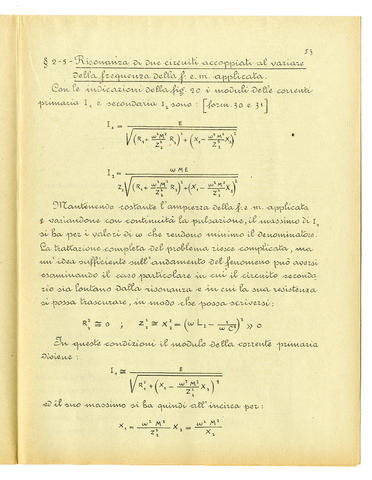 53
§ 2-5 - Risonanza di due circuiti accoppiati al variare
della frequenza della f. e. m. applicata.
Con le indicazioni della fig. 20 i moduli delle correnti
primaria I₁ e secondaria I₂ sono : [form. 30 e 31]
I₁ = E / √((R₁ + ω²M²/Z₂² R₂)² + (X₁ - ω²M²/Z₂² X₂)²)
I₂ = ω M E / Z₂ √((R₁ + ω²M²/Z₂² R₂)² + (X₁ - ω²M²/Z₂² X₂)²)
Mantenendo costante l'ampiezza della f. e. m. applicata
e variandone con continuità la pulsazione, il massimo di I₁
si ha per i valori di ω che rendono minimo il denominatore.
La trattazione completa del problema riesce complicata, ma
un'idea sufficiente sull'andamento del fenomeno può aversi
esaminando il caso particolare in cui il circuito seconda
rio sia lontano dalla risonanza e in cui la sua resistenza
si possa trascurare, in modo che possa scriversi:
R₂² ≅ 0 ; Z₂² ≅ X₂² = (ω L₂ - 1/ω C₂)² >> 0
In queste condizioni il modulo della corrente primaria
diviene :
I₁ ≅ E / √(R₁² + (X₁ - ω²M²/Z₂² X₂)²)
ed il suo massimo si ha quindi all'incirca per :
X₁ = ω² M²/Z₂² X₂ = ω² M²/X₂